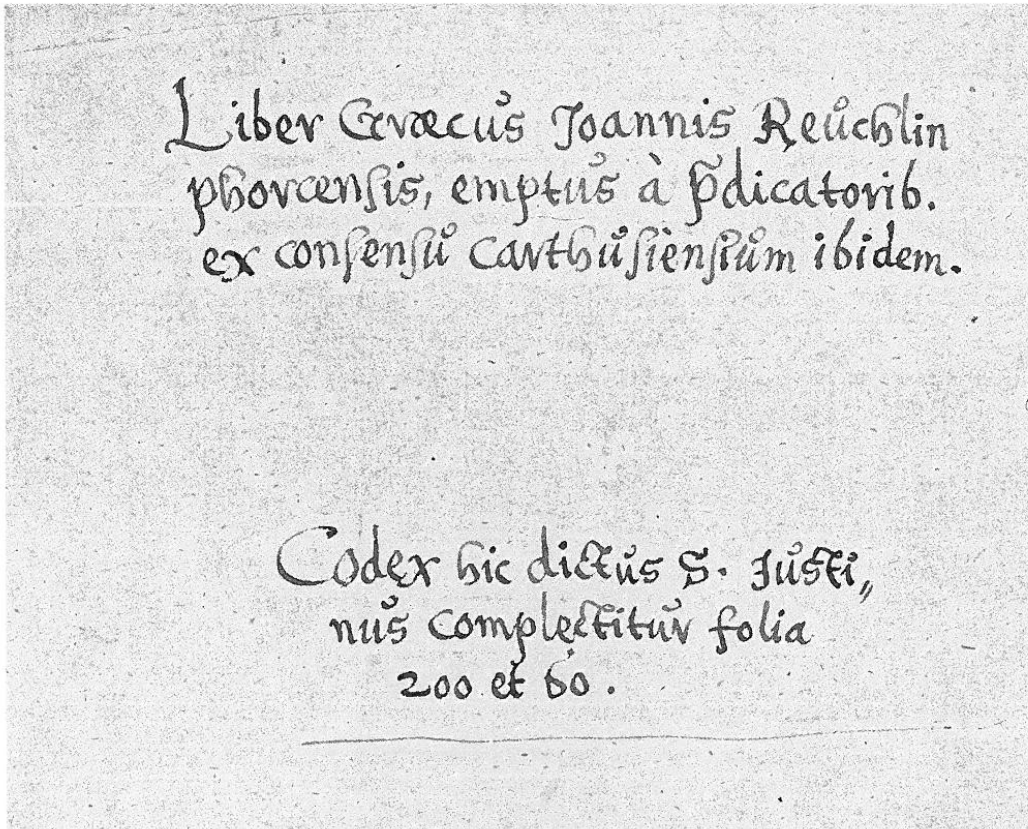 Liber Græcus Joannis Reuchlin
phorcensis, emptus à p̄dicatorib.
ex consensu Carthusiensium ibidem.
Codex hic dictus S. Justi„
nus complectitur folia
200 et 60.